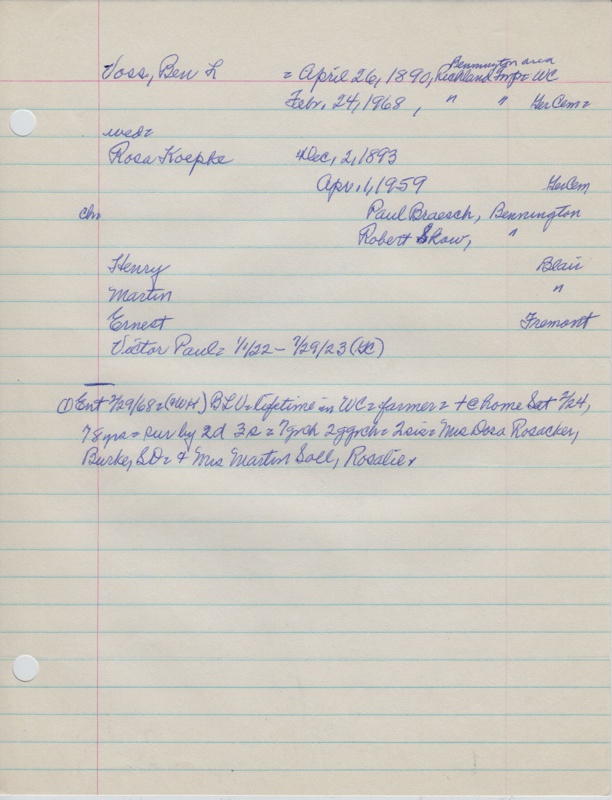 Bennington area
Voss, Ben L = April 26, 1890, Richland Twp = WC
Febr. 24, 1968, " " Ger Cem =
wed =
Rosa Koepke = Dec, 2, 1893
Apr. 1, 1959 Ger Cem
chn Paul Braesch, Bennington
Robert Skow, "
Henry Blair
Martin "
Ernest Fremont
Victor Paul = 1/1/22 - 7/29/23 (GC)
① Ent 2/29/68 = BLV = lifetime in WC = farmer = + @ home Sat 2/24,
78 yrs = sur by 2d 3s = 7 grch 2 ggrch = 2 sis = Mrs Dora Rosacker,
Burke, SD = & Mrs Martin Soll, Rosalie.